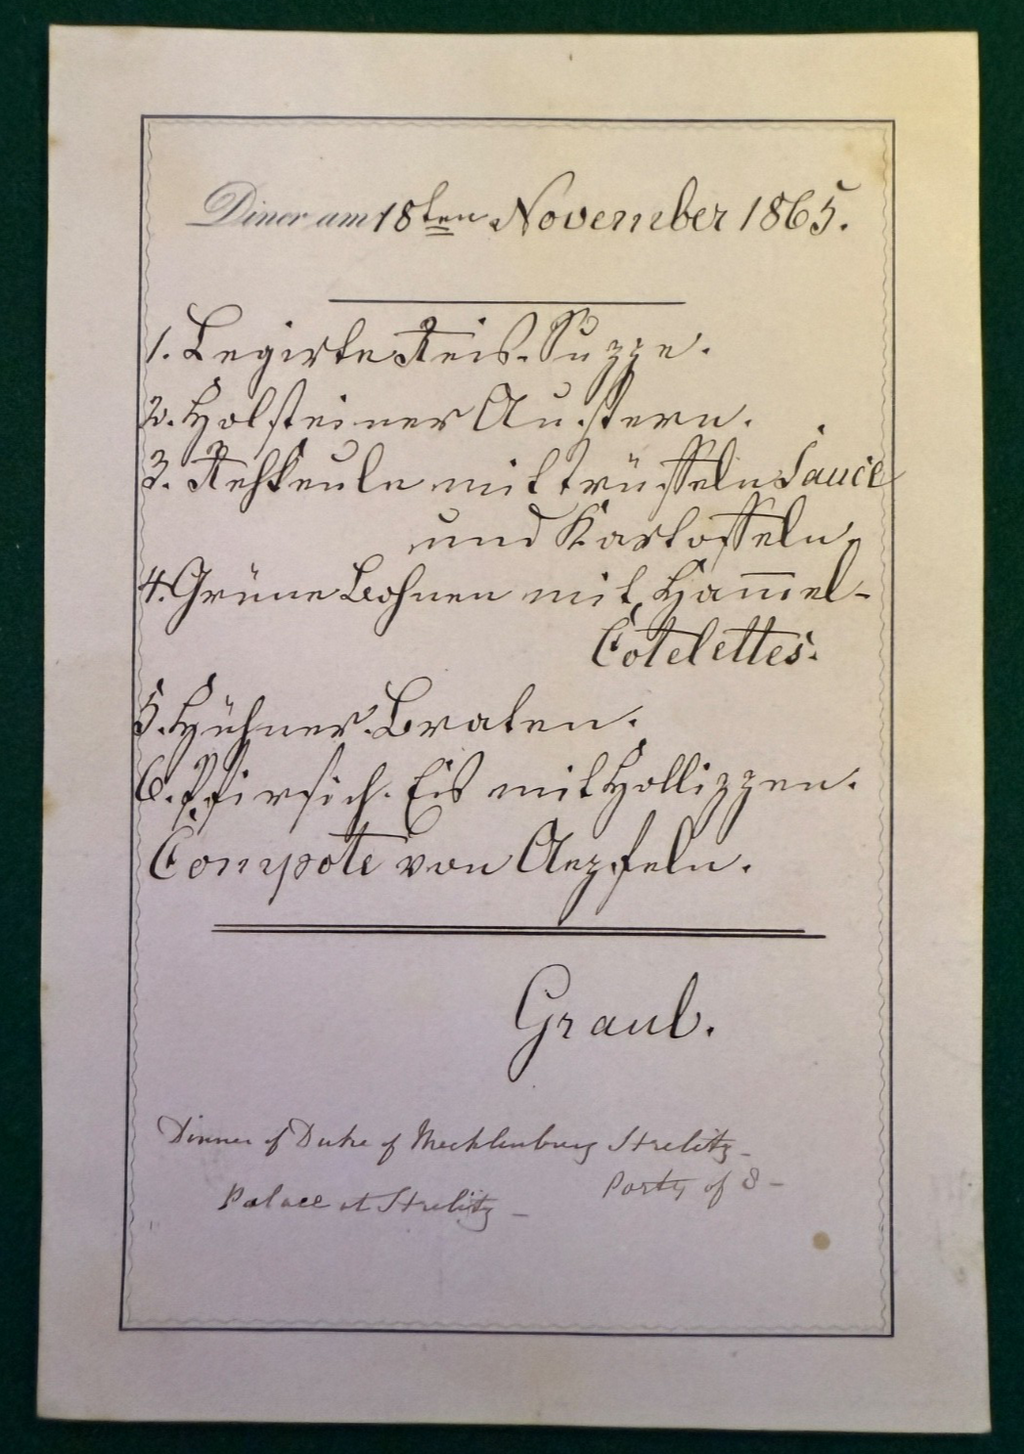 Diner am 18ten November 1865.
1. Legirte Reis-Suppe.
2. Holsteiner Austern.
3. Rehkeule mit trüffeln Sauce
und Kartoffeln.
4. Grüne Bohnen mit Ham̅el-
Cotelettes.
5. Hühner-Braten.
6. Pfirsich-Eis mit Hollippen.
Compote von Aepfeln.
Graul.
Dinner of Duke of Mecklenburg Strelitz -
Party of 8 -
Palace at Strelitz -